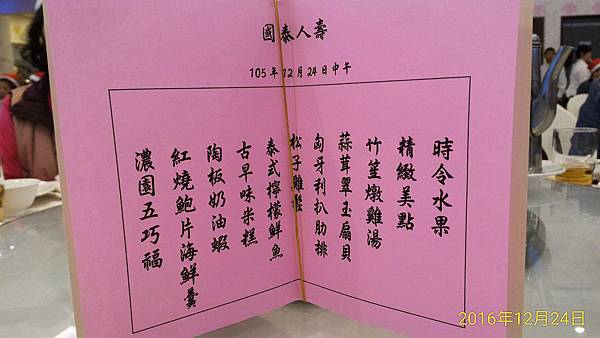 國泰人壽
105年12月24日中午
濃園五巧福
紅燒鮑片海鮮羹
陶板奶油蝦
古早味米糕
泰式檸檬鮮魚
松子雞
匈牙利扒肋排
蒜茸翠玉扇貝
竹笙燉雞湯
精緻美點
時令水果
2016年12月24日